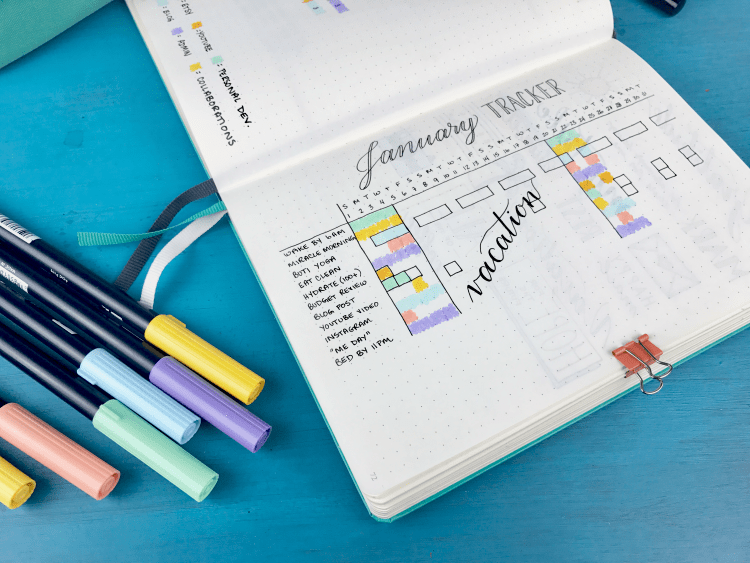 : ETSY
: BLOG
: YOUTUBE
: ADMIN
: PERSONAL DEV.
: COLLABORATIONS
January TRACKER
S M T W T F S S M T W T F S S M T W T F S S M T W T F S S M T
1 2 3 4 5 6 7 8 9 10 11 12 13 14 15 16 17 18 19 20 21 22 23 24 25 26 27 28 29 30 31
WAKE BY 6AM
MIRACLE MORNING
BUTI YOGA
EAT CLEAN
HYDRATE (100+)
BUDGET REVIEW
BLOG POST
YOUTUBE VIDEO
INSTAGRAM
"ME DAY"
BED BY 11PM
vacation
72